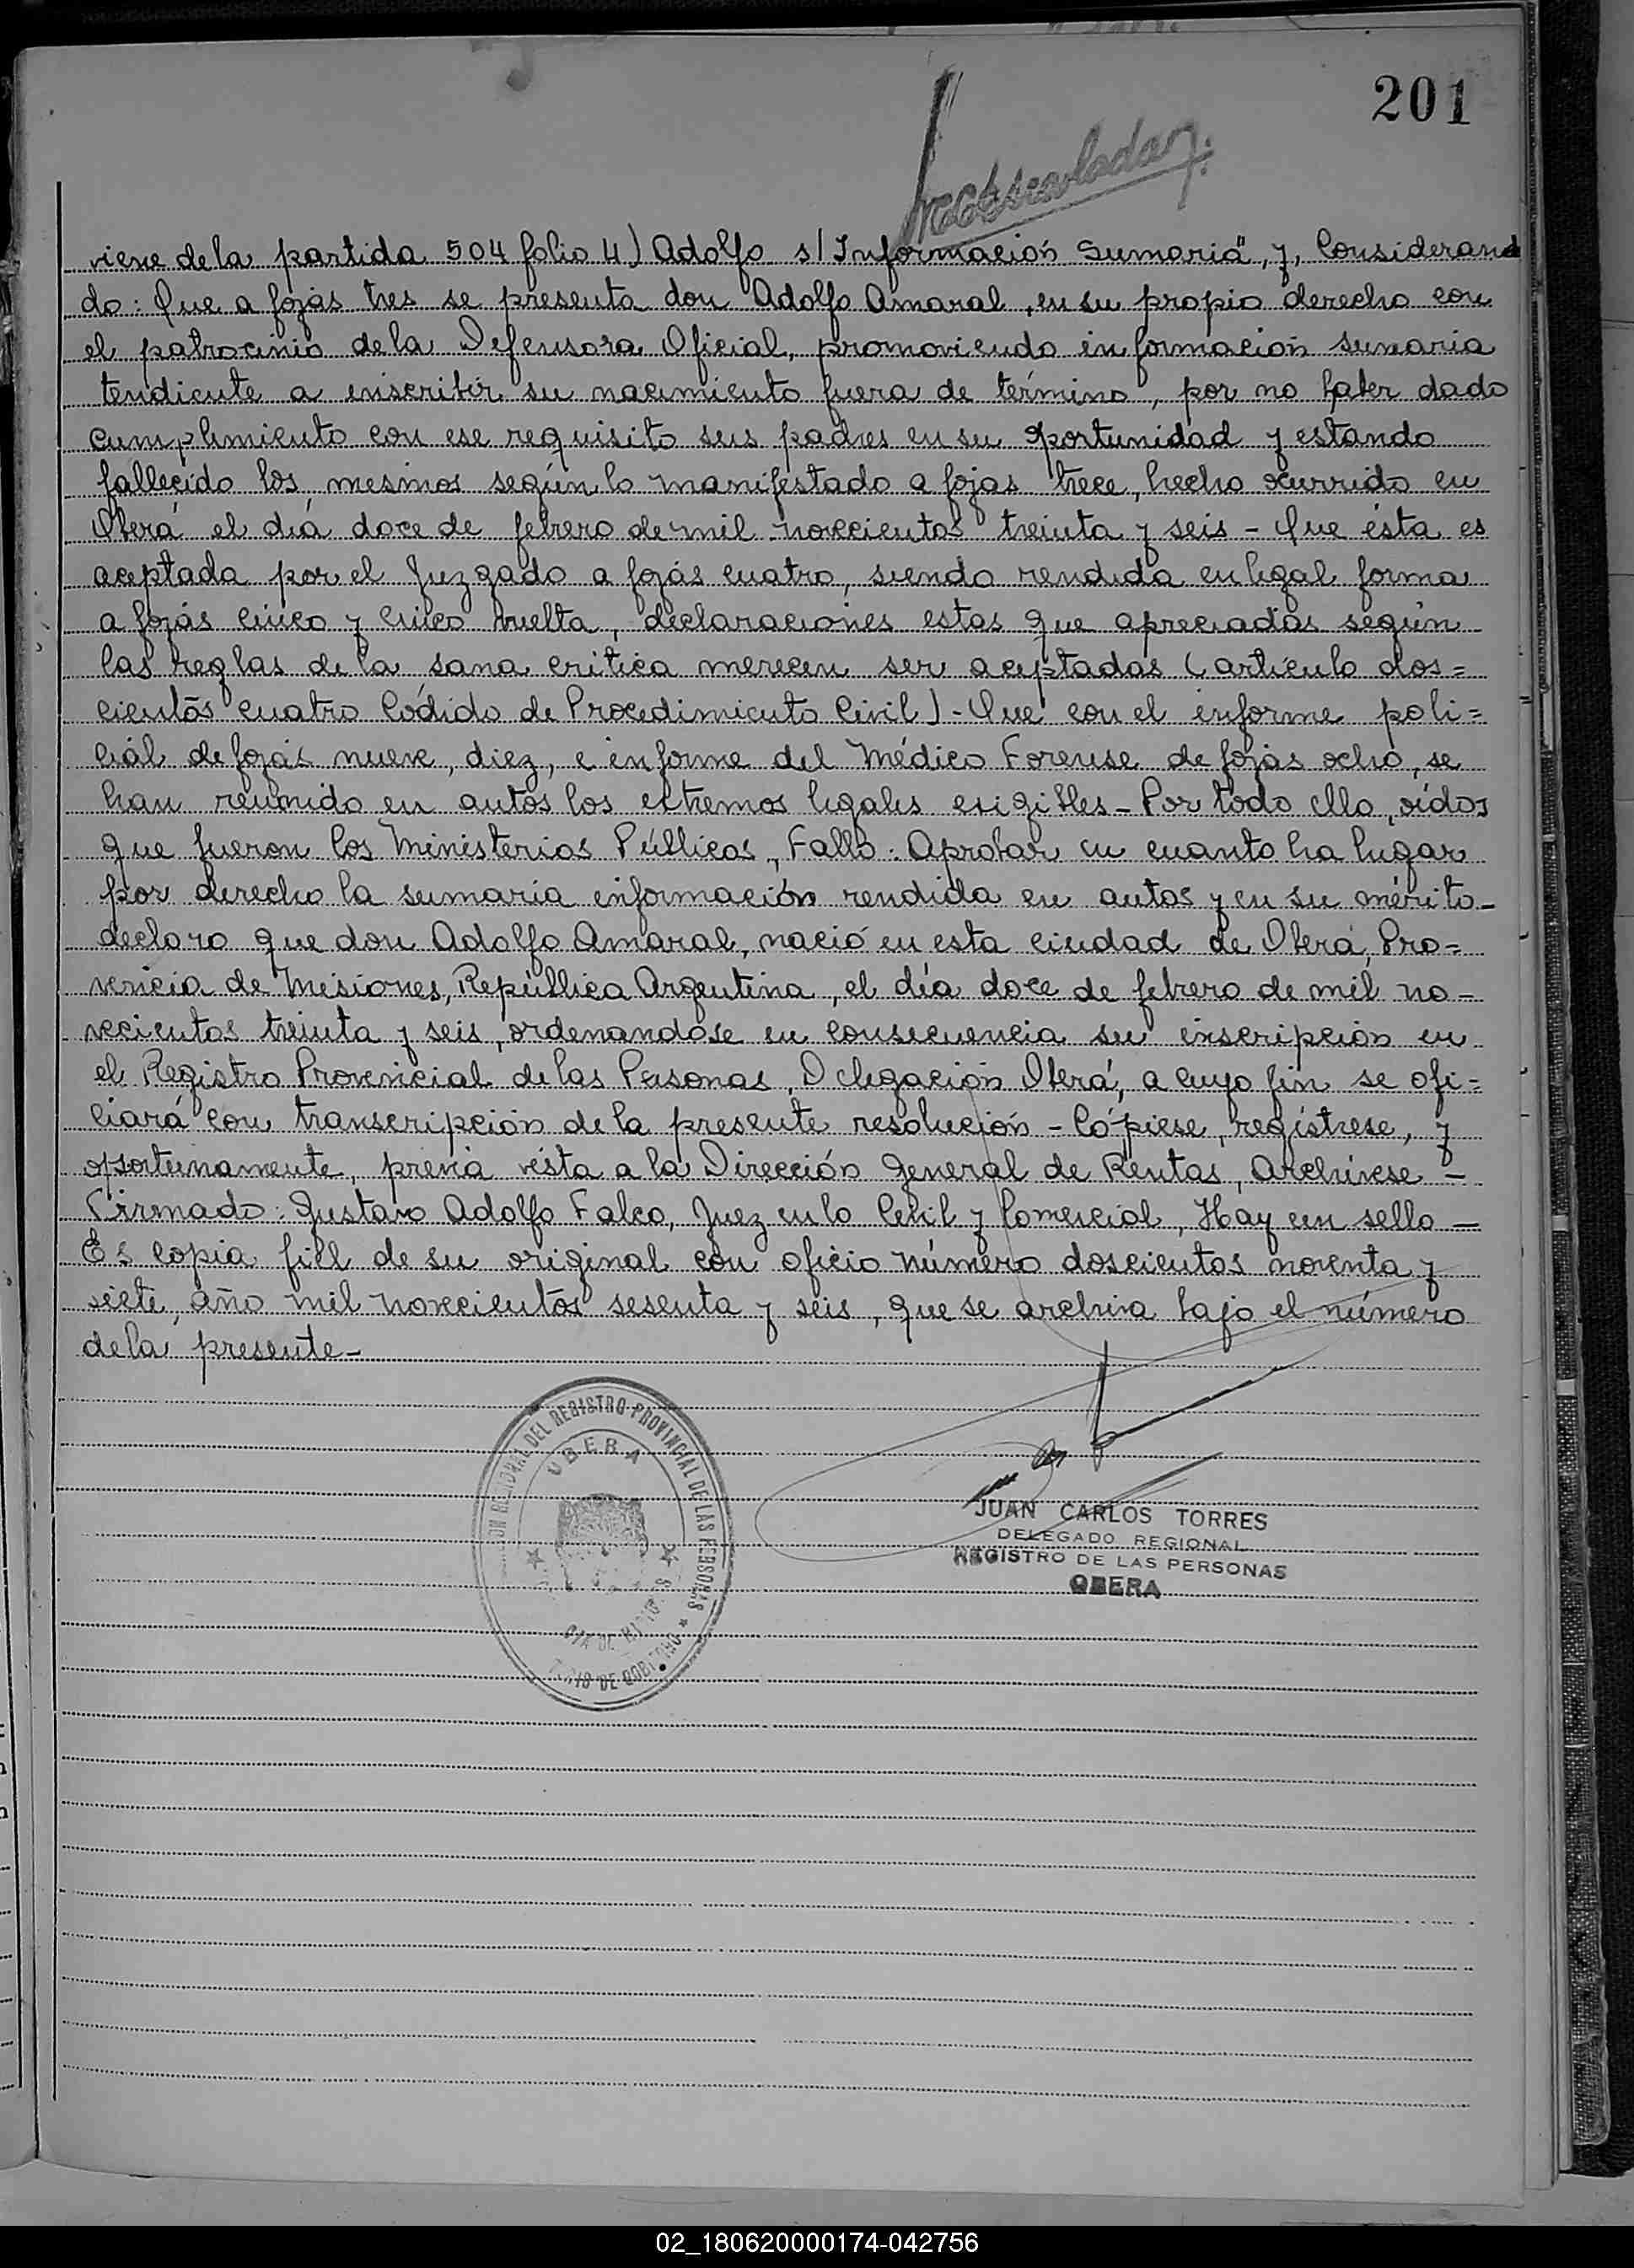 201
viene de la partida 504 folio 4) Adolfo s/ Información Sumaria", y, Considerand
do: Que a fojas tres se presenta don Adolfo Amaral, en su propio derecho con
el patrocinio de la Defensora Oficial, promoviendo información sumaria
tendiente a inscribir su nacimiento fuera de término, por no haber dado
cumplimiento con ese requisito sus padres en su oportunidad y estando
fallecido los mismos según lo manifestado a fojas trece, hecho ocurrido en
Oberá el día doce de febrero de mil novecientos treinta y seis - Que ésta es
aceptada por el Juzgado a fojas cuatro, siendo rendida en legal forma
a fojas cinco y cinco vuelta, declaraciones estas que apreciadas según
las reglas de la sana critica merecen ser aceptadas (artículo dos=
cientos cuatro Códido de Procedimiento Civil) - Que con el informe poli=
cial de fojas nueve, diez, e informe del Médico Forense de fojas ocho, se
han reunido en autos los extremos legales exigibles - Por todo ello, oídos
que fueron los Ministerios Públicos, Fallo: Aprobar en cuanto ha lugar
por derecho la sumaria información rendida en autos y en su mérito -
declaro que don Adolfo Amaral, nació en esta ciudad de Oberá, Pro=
vincia de Misiones, República Argentina, el día doce de febrero de mil no-
vecientos treinta y seis, ordenandose en consecuencia su inscripción en
el Registro Provincial de las Personas, Delegación Oberá, a cuyo fin se ofi=
ciará con transcripción de la presente resolución - Cópiese, regístrese, y
oportunamente, previa vista a la Dirección General de Rentas, Archívese -
Firmado: Gustavo Adolfo Falco, Juez en lo Civil y Comercial, Hay un sello -
Es copia fiel de su original con oficio número doscientos noventa y
siete, año mil novecientos sesenta y seis, que se archiva bajo el número
de la presente -
DEL REGISTRO PROVINCIAL DE LAS PERSONAS
OBERA
JUAN CARLOS TORRES
DELEGADO REGIONAL
REGISTRO DE LAS PERSONAS
OBERA
02_180620000174-042756